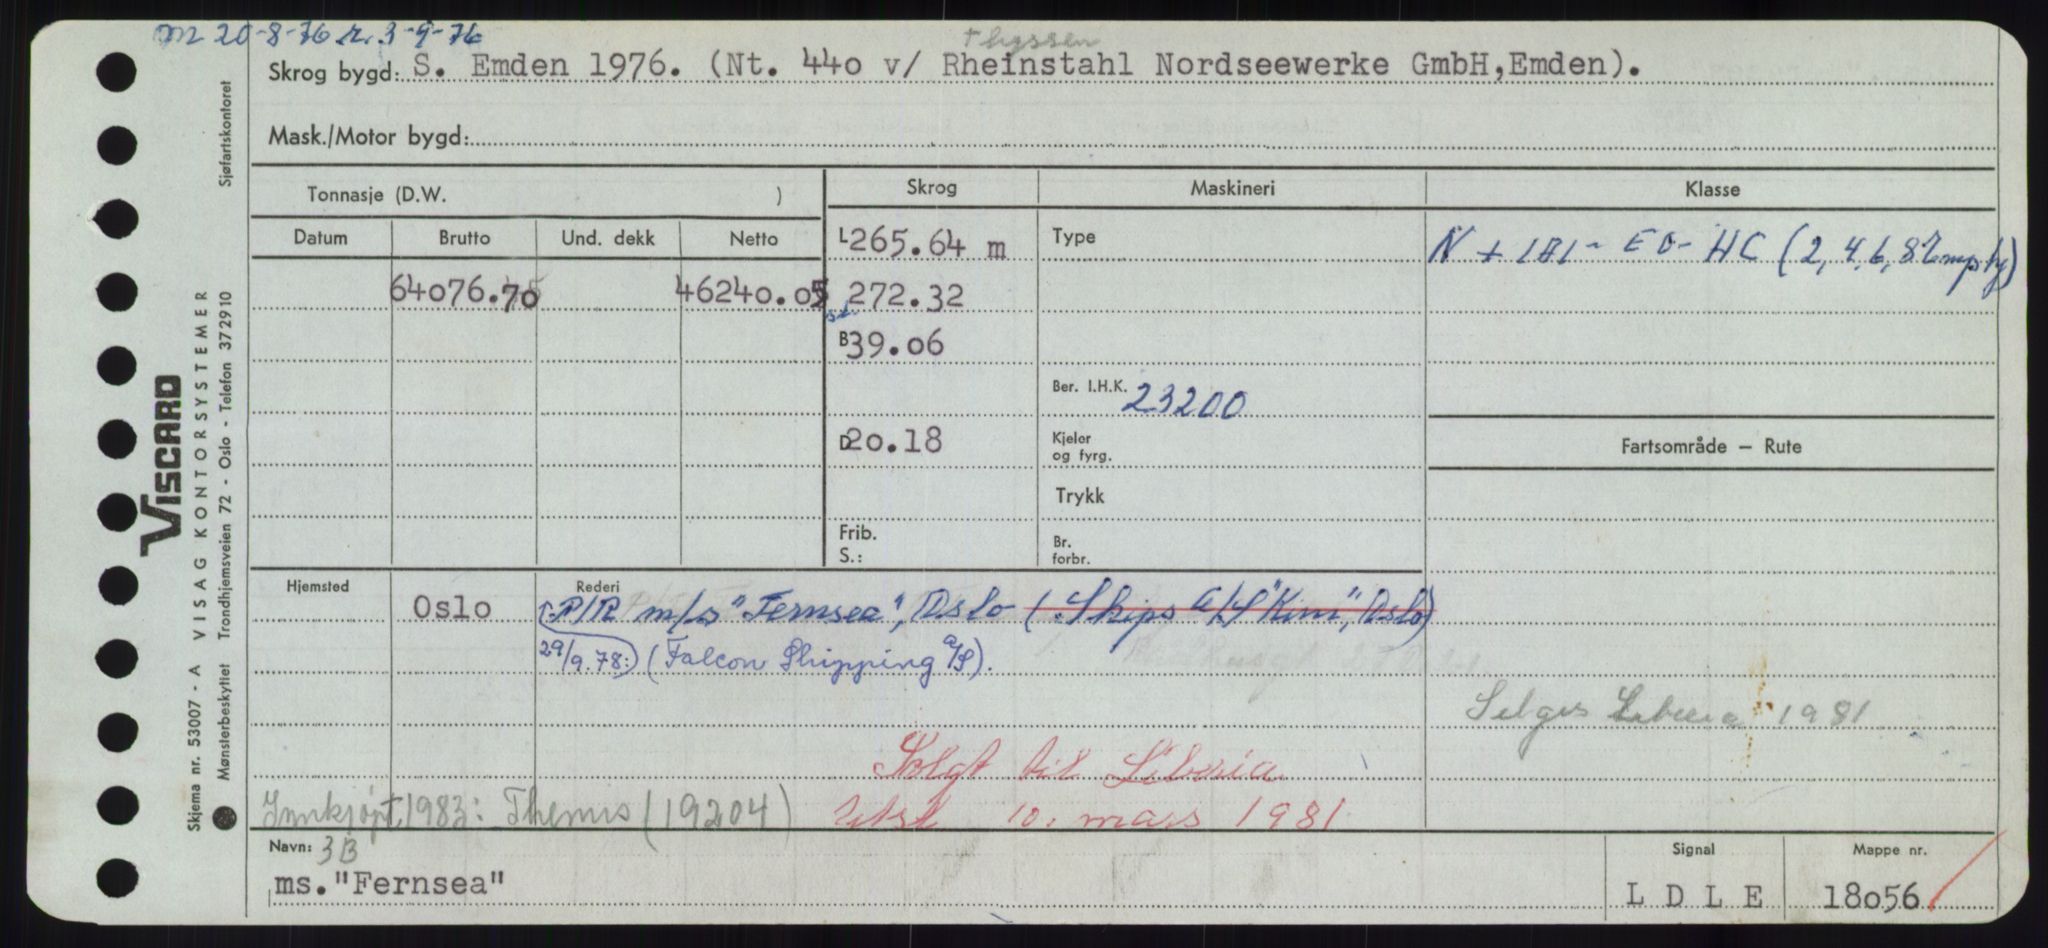 m 20-8-76 r. 3-9-76
Thyssen
Skrog bygd: S. Emden 1976. (Nt. 440 v/ Rheinstahl Nordseewerke GmbH,Emden).
Mask./Motor bygd:
Tonnasje (D.W. )
Skrog
Maskineri
Klasse
Datum
Brutto
Und. dekk
Netto
L 265.64 m
Type
N + 1A1 - EO - HC (2,4,6,8 Empty)
64076.70
46240.05
st. 272.32
B 39.06
Ber. I.H.K. 23200
D 20.18
Kjeler
og fyrg.
Fartsområde — Rute
Trykk
Frib.
S.:
Br.
forbr.
Hjemsted
Oslo
Rederi
P/R m/s "Fernsea", Oslo (Skips A/S "Kim", Oslo)
29/9.78:) (Falcon Shipping A/S).
Selges Liberia 1981
Solgt til Liberia
Innkjøpt 1983: Themis (19204)
10. mars 1981
Navn: 3B
ms. "Fernsea"
Signal
L D L E
Mappe nr.
18056
VISCARD
Skjema nr. 53007 - A VISAG KONTORSYSTEMER
Mønsterbeskyttet Trondhjemsveien 72 - Oslo - Telefon 372910 Sjøfartskontoret